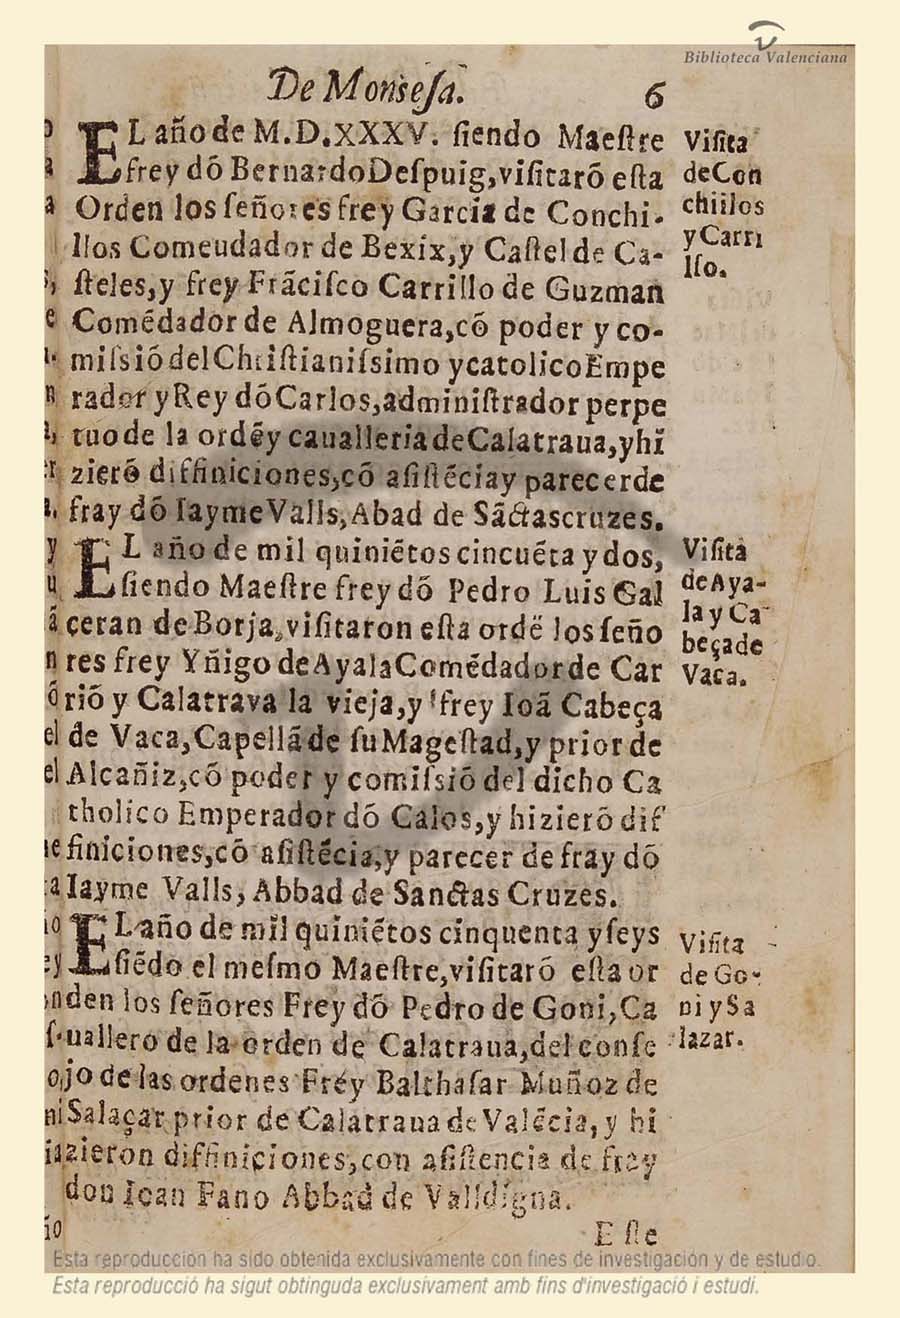 Biblioteca Valenciana
De Monsesa.
6
EL año de M.D.XXXV. siendo Maestre
frey dõ Bernardo Despuig, visitarõ esta
Orden los señores frey Garcia de Conchi-
llos Comeudador de Bexix, y Castel de Ca-
steles, y frey Frãcisco Carrillo de Guzman
Comẽdador de Almoguera, cõ poder y co-
missiõ del Christianissimo y catolico Empe
rador y Rey dõ Carlos, administrador perpe
tuo de la ordẽ y caualleria de Calatraua, y hi
zierõ diffiniciones, cõ asistẽcia y parecer de
fray dõ Iayme Valls, Abad de Sãctas cruzes.
Visita
de Con
chiilos
y Carri
llo.
EL año de mil quiniẽtos cincuẽta y dos,
siendo Maestre frey dõ Pedro Luis Gal
ceran de Borja, visitaron esta ordẽ los seño
res frey Yñigo de Ayala Comẽdador de Car
riõ y Calatrava la vieja, y frey Ioã Cabeça
de Vaca, Capellã de su Magestad, y prior de
Alcañiz, cõ poder y comissiõ del dicho Ca
tholico Emperador dõ Calos, y hizierõ dif
finiciones, cõ asistẽcia, y parecer de fray dõ
Iayme Valls, Abbad de Sanctas Cruzes.
Visita
de Aya-
la y Ca
beça de
Vaca.
EL año de mil quiniẽtos cinquenta y seys
siẽdo el mesmo Maestre, visitarõ esta or
den los señores Frey dõ Pedro de Goni, Ca
uallero de la orden de Calatraua, del conse
jo de las ordenes Frey Balthasar Muñoz de
Salaçar prior de Calatraua de Valẽcia, y hi
zieron diffiniciones, con asistencia de fray
don Ioan Fano Abbad de Valldigna.
Visita
de Go-
ni y Sa
lazar.
Este
Esta reproducción ha sido obtenida exclusivamente con fines de investigación y de estudio.
Esta reproducció ha sigut obtinguda exclusivament amb fins d'investigació i estudi.